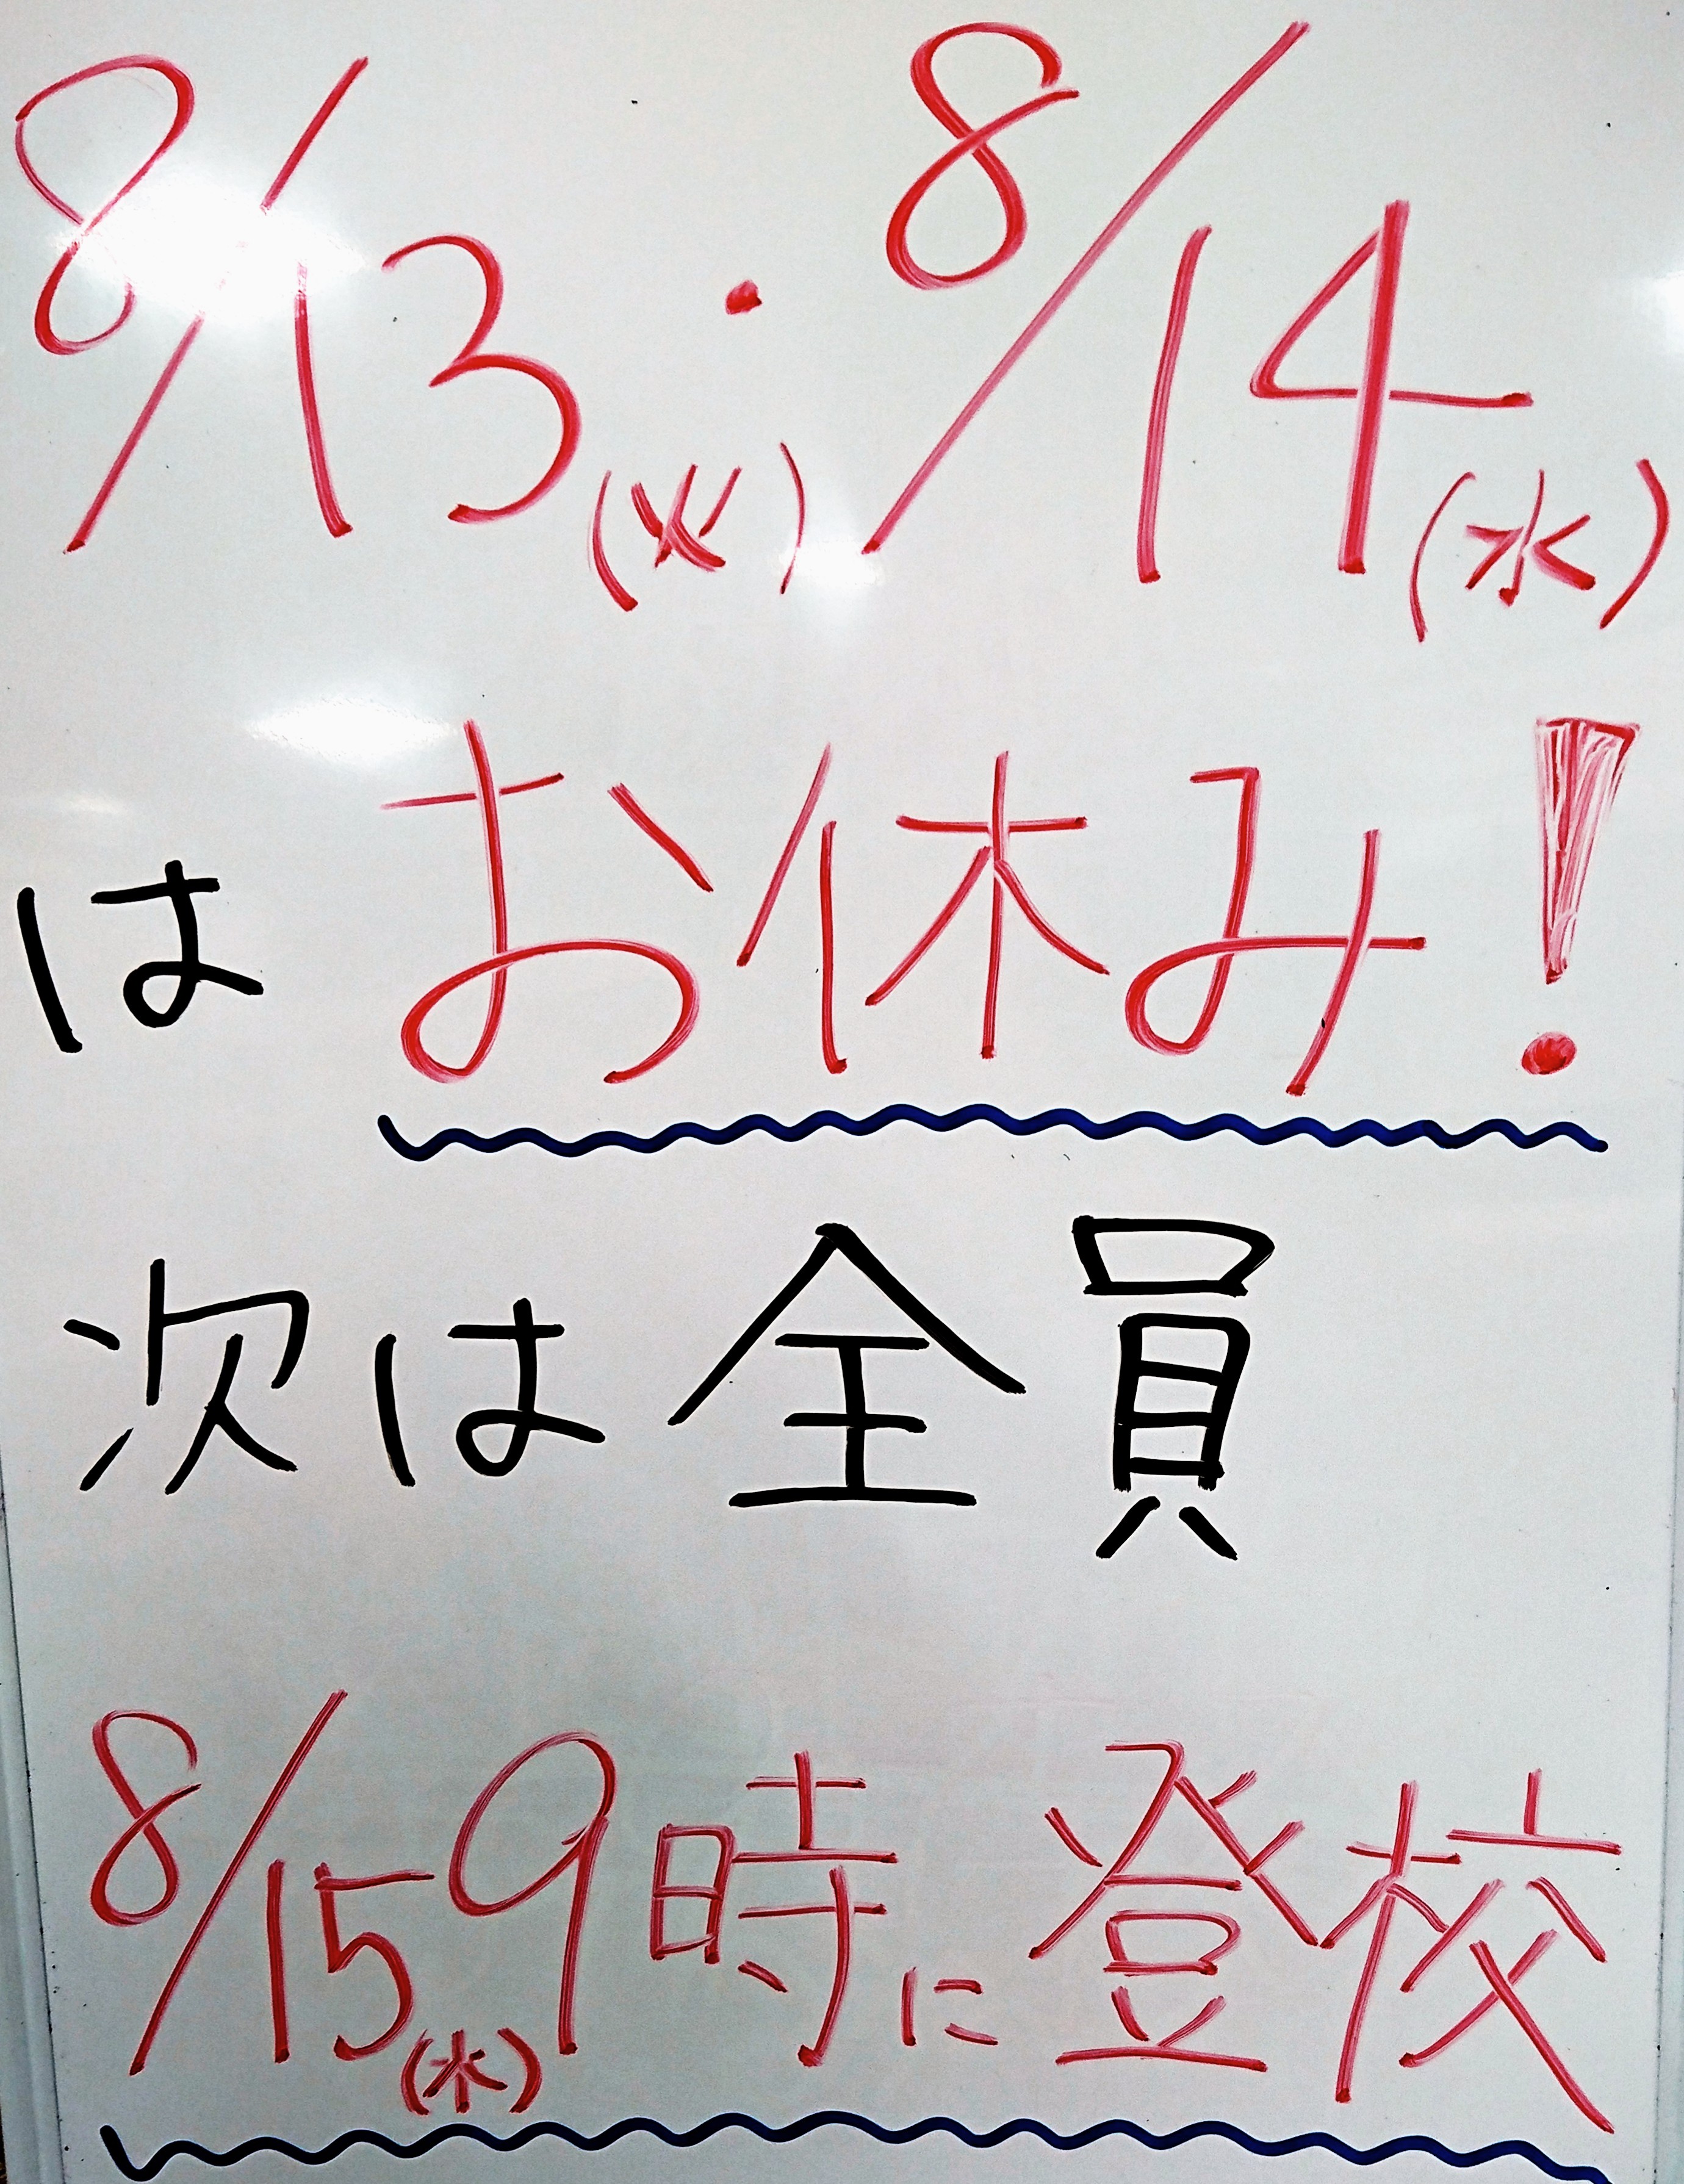 8/13(火)・8/14(水)
はお休み!
次は全員
8/15(木)9時に登校